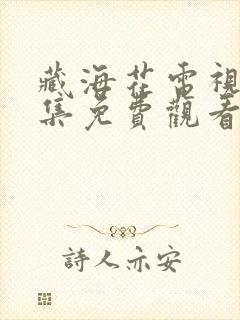 藏海花電視
集免費觀看
詩人亦安